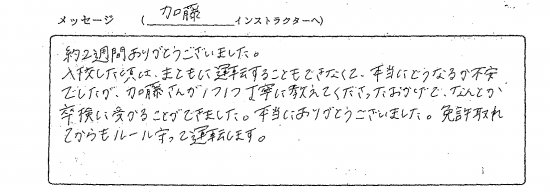 メッセージ ( 加藤 インストラクターへ)
約2週間ありがとうございました。
入校した頃は、まともに運転することもできなくて、本当にどうなるか不安
でしたが、加藤さんが1つ1つ丁寧に教えてくださったおかげで、なんとか
卒検に受かることができました。本当にありがとうございました。免許取れ
てからもルール守って運転します。